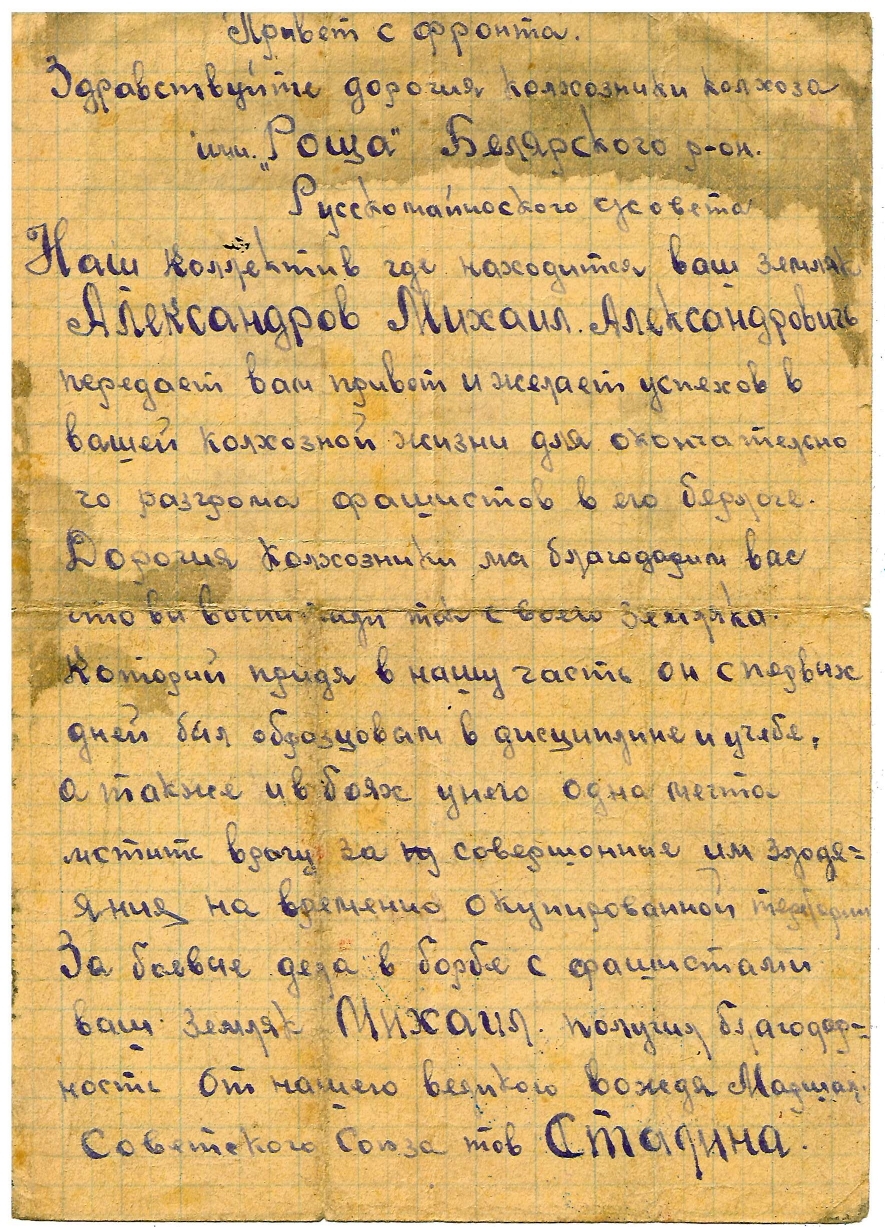 Привет с фронта.
Здравствуйте дорогия колхозники колхоза
имн. „Роща" Белярского р-он.
Русскомайноского с/совета
Наш коллектив где находится ваш земляк
Александров Михаил. Александровичь
передает вам привет и желает успехов в
вашей колхозной жизни для окончательно
го разгрома фашистов в его берлоге.
Дорогия колхозники ма благодарим вас
что ви воспитали так своего земляка.
Которий придя в нашу часть он с первих
дней был образцовам в дисциплине и учебе,
а также и в боях унего одна мечта
мстить врагу за совершонные им злодея=
яния на временно окупированной територии
За боевые дела в борбе с фашистами
ваш земляк Михаил. получил благодар=
ность от нашего велкого вождя Маршал.
Советского Союза тов Сталина.